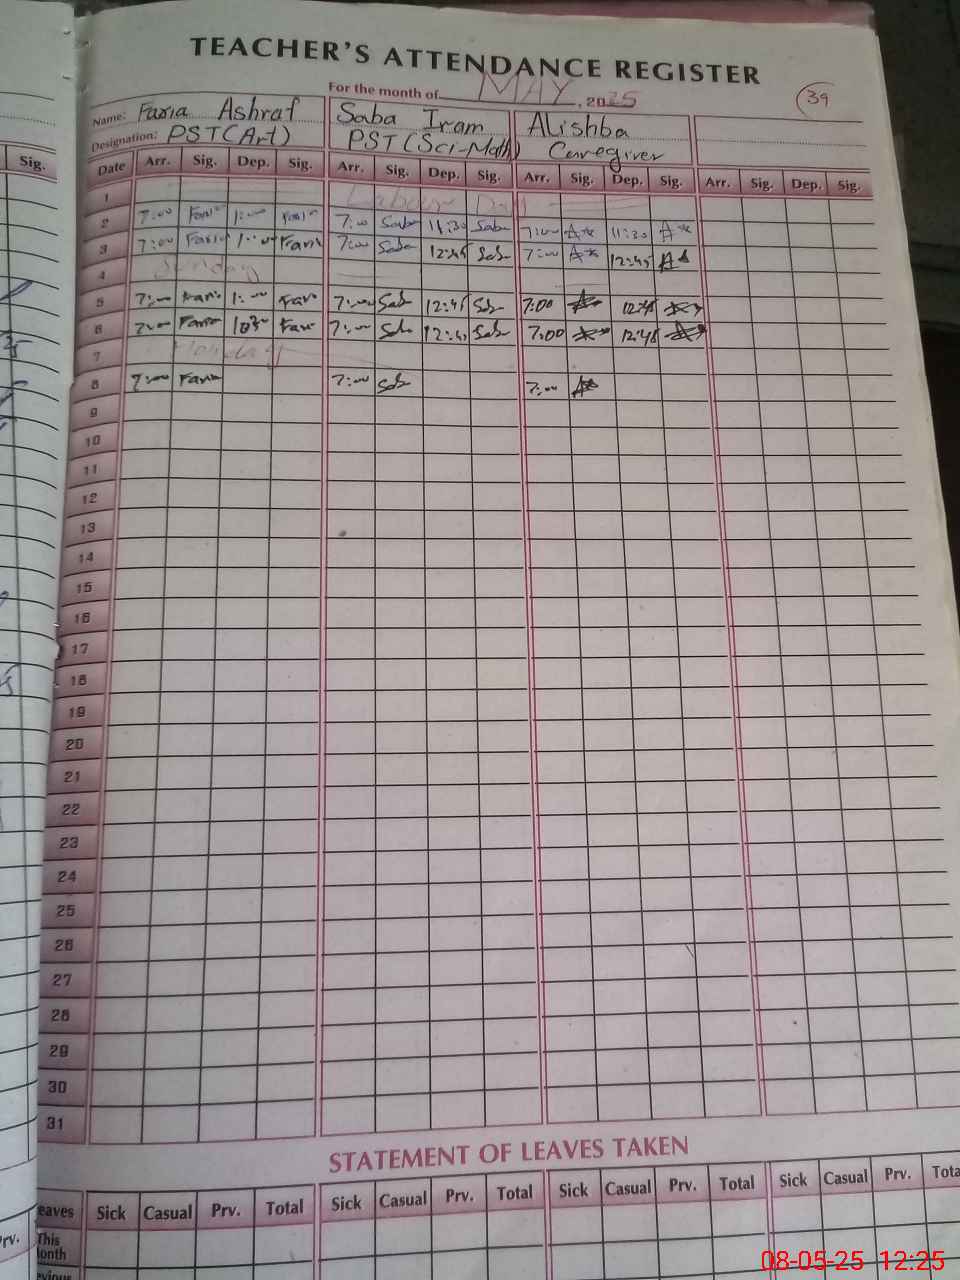 TEACHER'S ATTENDANCE REGISTER
For the month of MAY, 2025
39
Name: Faria Ashraf Saba Iram Alishba
Designation: PST(Art) PST(Sci-Math) Caregiver
Sig. Date Arr. Sig. Dep. Sig. Arr. Sig. Dep. Sig. Arr. Sig. Dep. Sig. Arr. Sig. Dep. Sig.
1 Labour Day
2 7:00 Faria 1:00 Faria 7:00 Saba 11:30 Saba 7:00 11:30
3 7:00 Faria 1:00 Faria 7:00 Saba 12:45 Sab 7:00 12:45
4 Sunday
5 7:00 Faria 1:00 Faria 7:00 Sab 12:45 Sab 7:00 12:45
6 7:00 Faria Faria 7:00 Sab 12:45 Sab 7:00 12:45
7 Holiday
8 7:00 Faria 7:00 Sab 7:00
9
10
11
12
13
14
15
16
17
18
19
20
21
22
23
24
25
26
27
28
29
30
31
STATEMENT OF LEAVES TAKEN
eaves Sick Casual Prv. Total Sick Casual Prv. Total Sick Casual Prv. Total Sick Casual Prv. Tota
rv. This
onth
evious
08-05-25 12:25